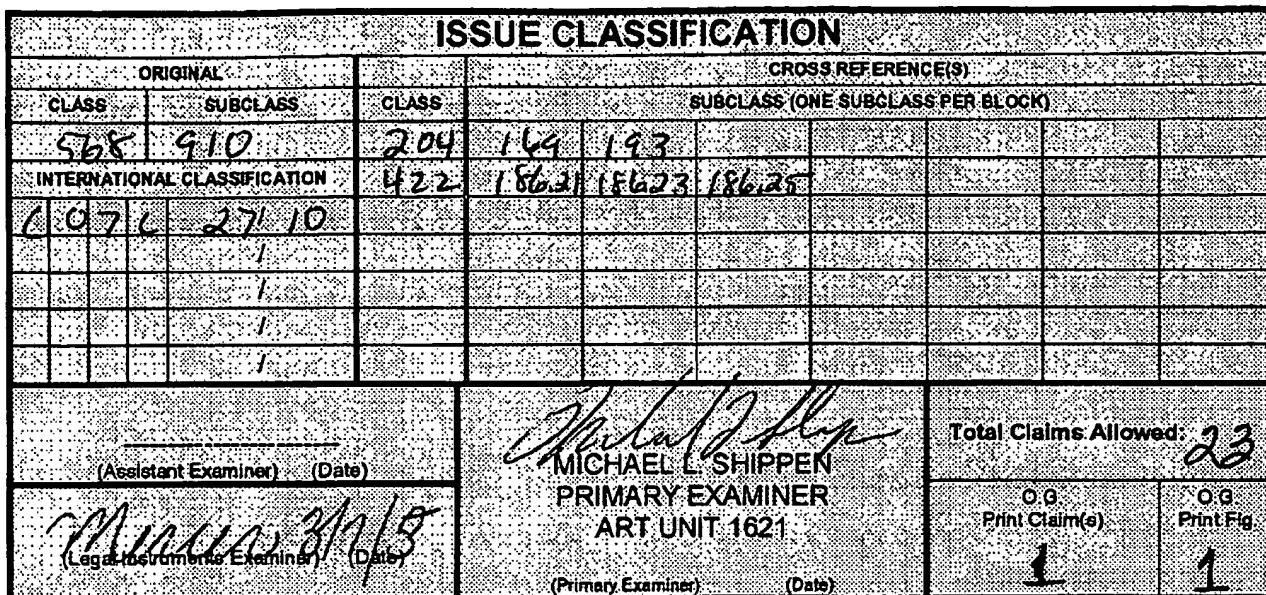 ISSUE CLASSIFICATION
ORIGINAL CROSS REFERENCE(S)
CLASS SUBCLASS CLASS SUBCLASS (ONE SUBCLASS PER BLOCK)
568 910 204 169 193
INTERNATIONAL CLASSIFICATION 422 186.21 186.23 186.25
C 0 7 C 27/10
/
/
/
/
Total Claims Allowed: 23
(Assistant Examiner) (Date)
MICHAEL L. SHIPPEN
PRIMARY EXAMINER
ART UNIT 1621
(Primary Examiner) (Date)
(Legal Instruments Examiner) (Date)
O.G. Print Claim(s)
1
O.G. Print Fig.
1